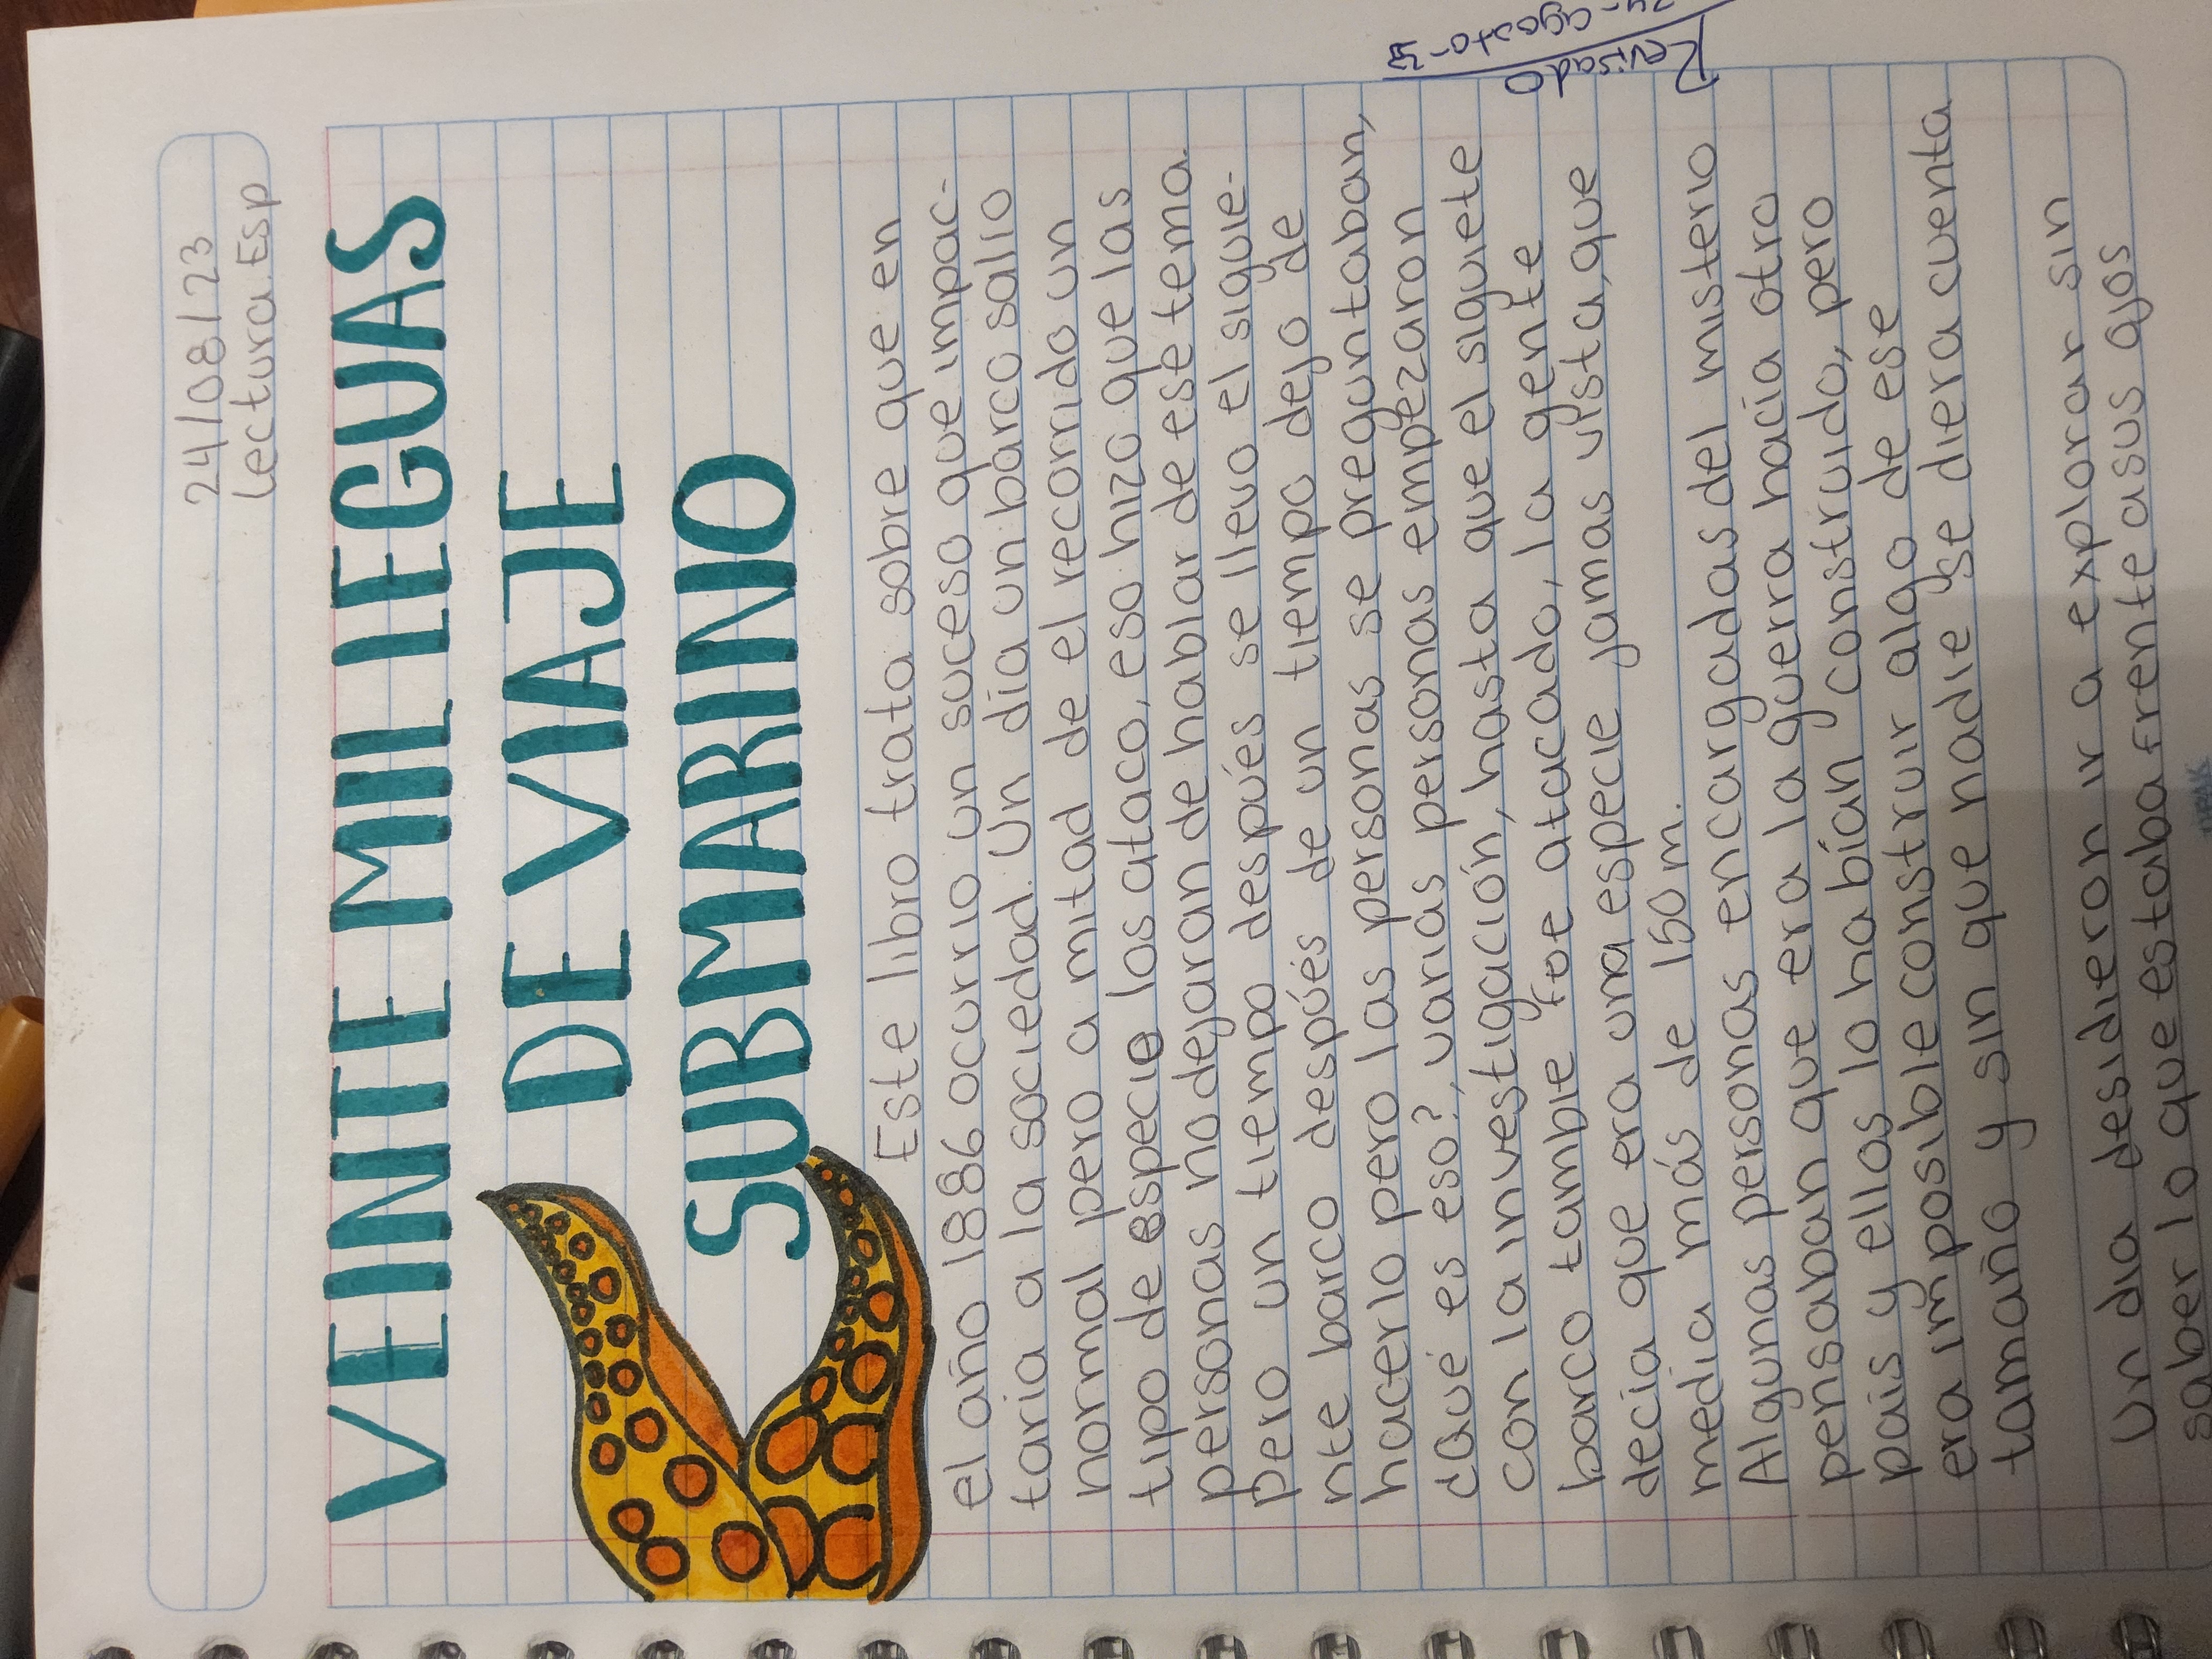 24/08/23
Lectura.Esp
VEINTE MIL LEGUAS
DE VIAJE
SUBMARINO
Este libro trata sobre que en
el año 1886 ocurrio un suceso que impac-
taria a la sociedad. Un día un barco salio
normal pero a mitad de el recorrido un
tipo de especie los ataco, eso hizo que las
personas no dejaran de hablar de ese tema.
pero un tiempo después se llevo el siguie-
nte barco después de un tiempo dejo de
hacerlo pero las personas se preguntaban,
¿Qué es eso?, varias personas empezaron
con la investigación, hasta que el siguiete
barco tambie fue atacado, la gente
decia que era una especie jamas vista, que
media más de 150 m.
Algunas personas encargadas del misterio
pensaban que era la guerra hacia otro
pais y ellos lo habían construido, pero
era imposible construir algo de ese
tamaño y sin que nadie se diera cuenta
Un dia desidieron ir a explorar sin
saber lo que estaba frente asus ojos
Revisado
24-agosto-